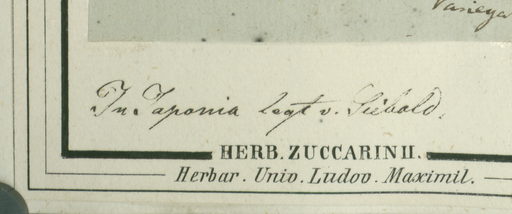 Variega
In Japonia legt v. Siebold.
HERB. ZUCCARINII.
Herbar. Univ. Ludov. Maximil.